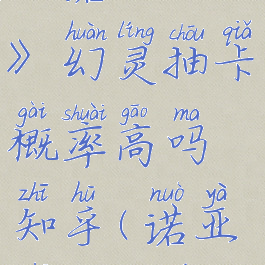 huàn líng chōu qiǎ
》幻灵抽卡
gài shuài gāo ma
概率高吗
zhī hū nuò yà
知乎(诺亚